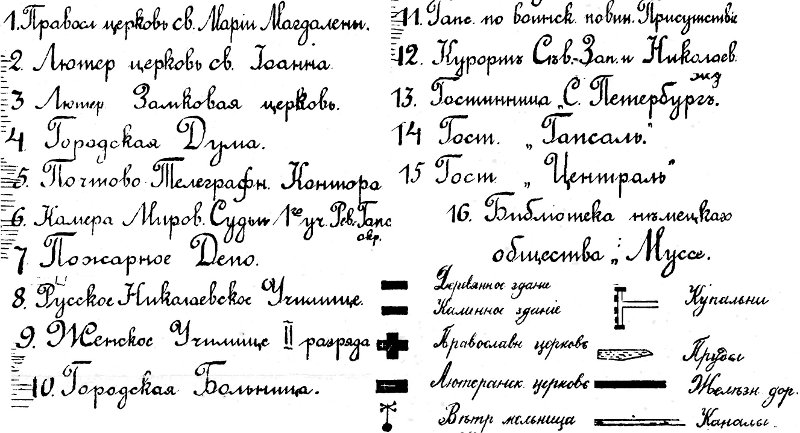 1. Правосл церковь св. Маріи Магдалены.
2. Лютер церковь св. Іоанна
3 Лютер Замковая церковь.
4 Городская Дума.
5. Почтово-Телеграфн. Контора
6. Камера Миров. Судьи 1го уч. Рев. Гапс
окр.
7 Пожарное Депо.
8. Русское Николаевское Училище.
9. Женское Училище II разряда
10. Городская Больница.
11. Гапс. по воинск. повин. Присутствіе
12. Курортъ Сѣв.-Зап. и Николаев.
жд
13. Гостинница „С. Петербургъ.
14 Гост. „Гапсаль."
15 Гост „Централь"
16. Библіотека нѣмецкаго
общества „Муссе.
Деревянное зданіе
Каминное зданіе
Православн церковь
Лютеранск. церковь
Вѣтр мельница
Купальни
Пруды
Желѣзн дор.
Каналы.